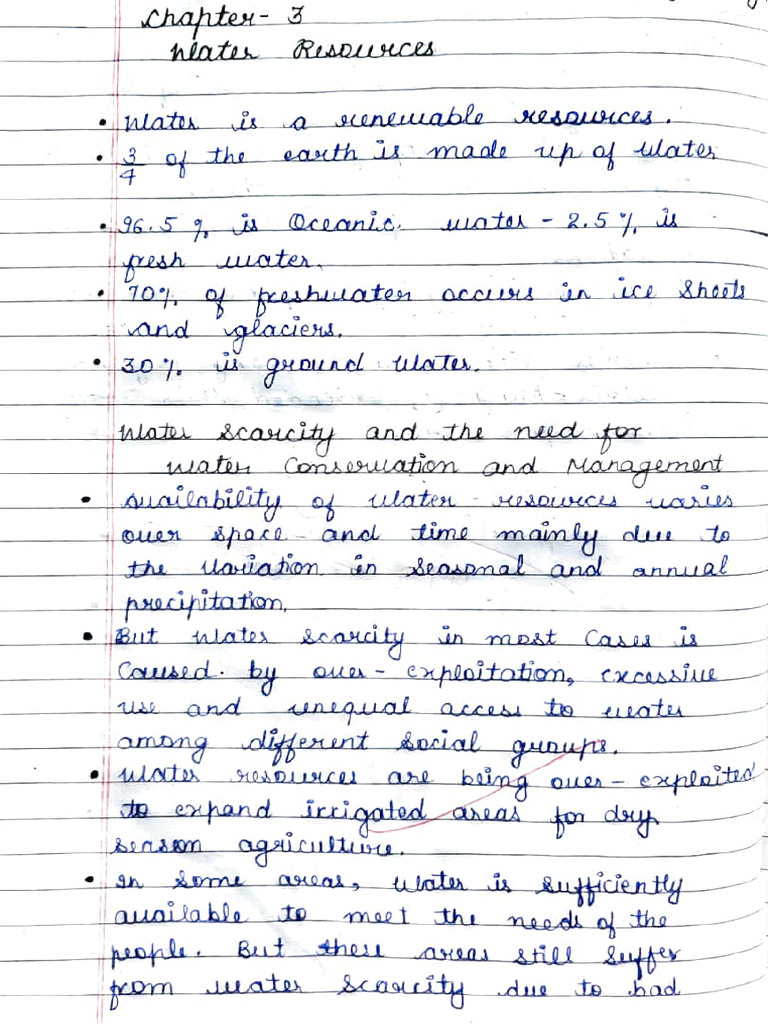 Chapter- 3
Water Resources
• Water is a renewable resources.
• 3/4 of the earth is made up of water
• 96.5 % is Oceanic water - 2.5 % is
fresh water.
• 70% of freshwater occurs in ice sheets
and glaciers.
• 30 % is ground water.
Water scarcity and the need for
water Conservation and Management
• availability of water resources varies
over space and time mainly due to
the variation in seasonal and annual
precipitation.
• But water scarcity in most cases is
caused by over - exploitation, excessive
use and unequal access to water
among different social groups.
• Water resources are being over - exploited
to expand irrigated areas for dry
season agriculture.
• In some areas, water is sufficiently
available to meet the needs of the
people. But these areas still suffer
from water scarcity due to bad